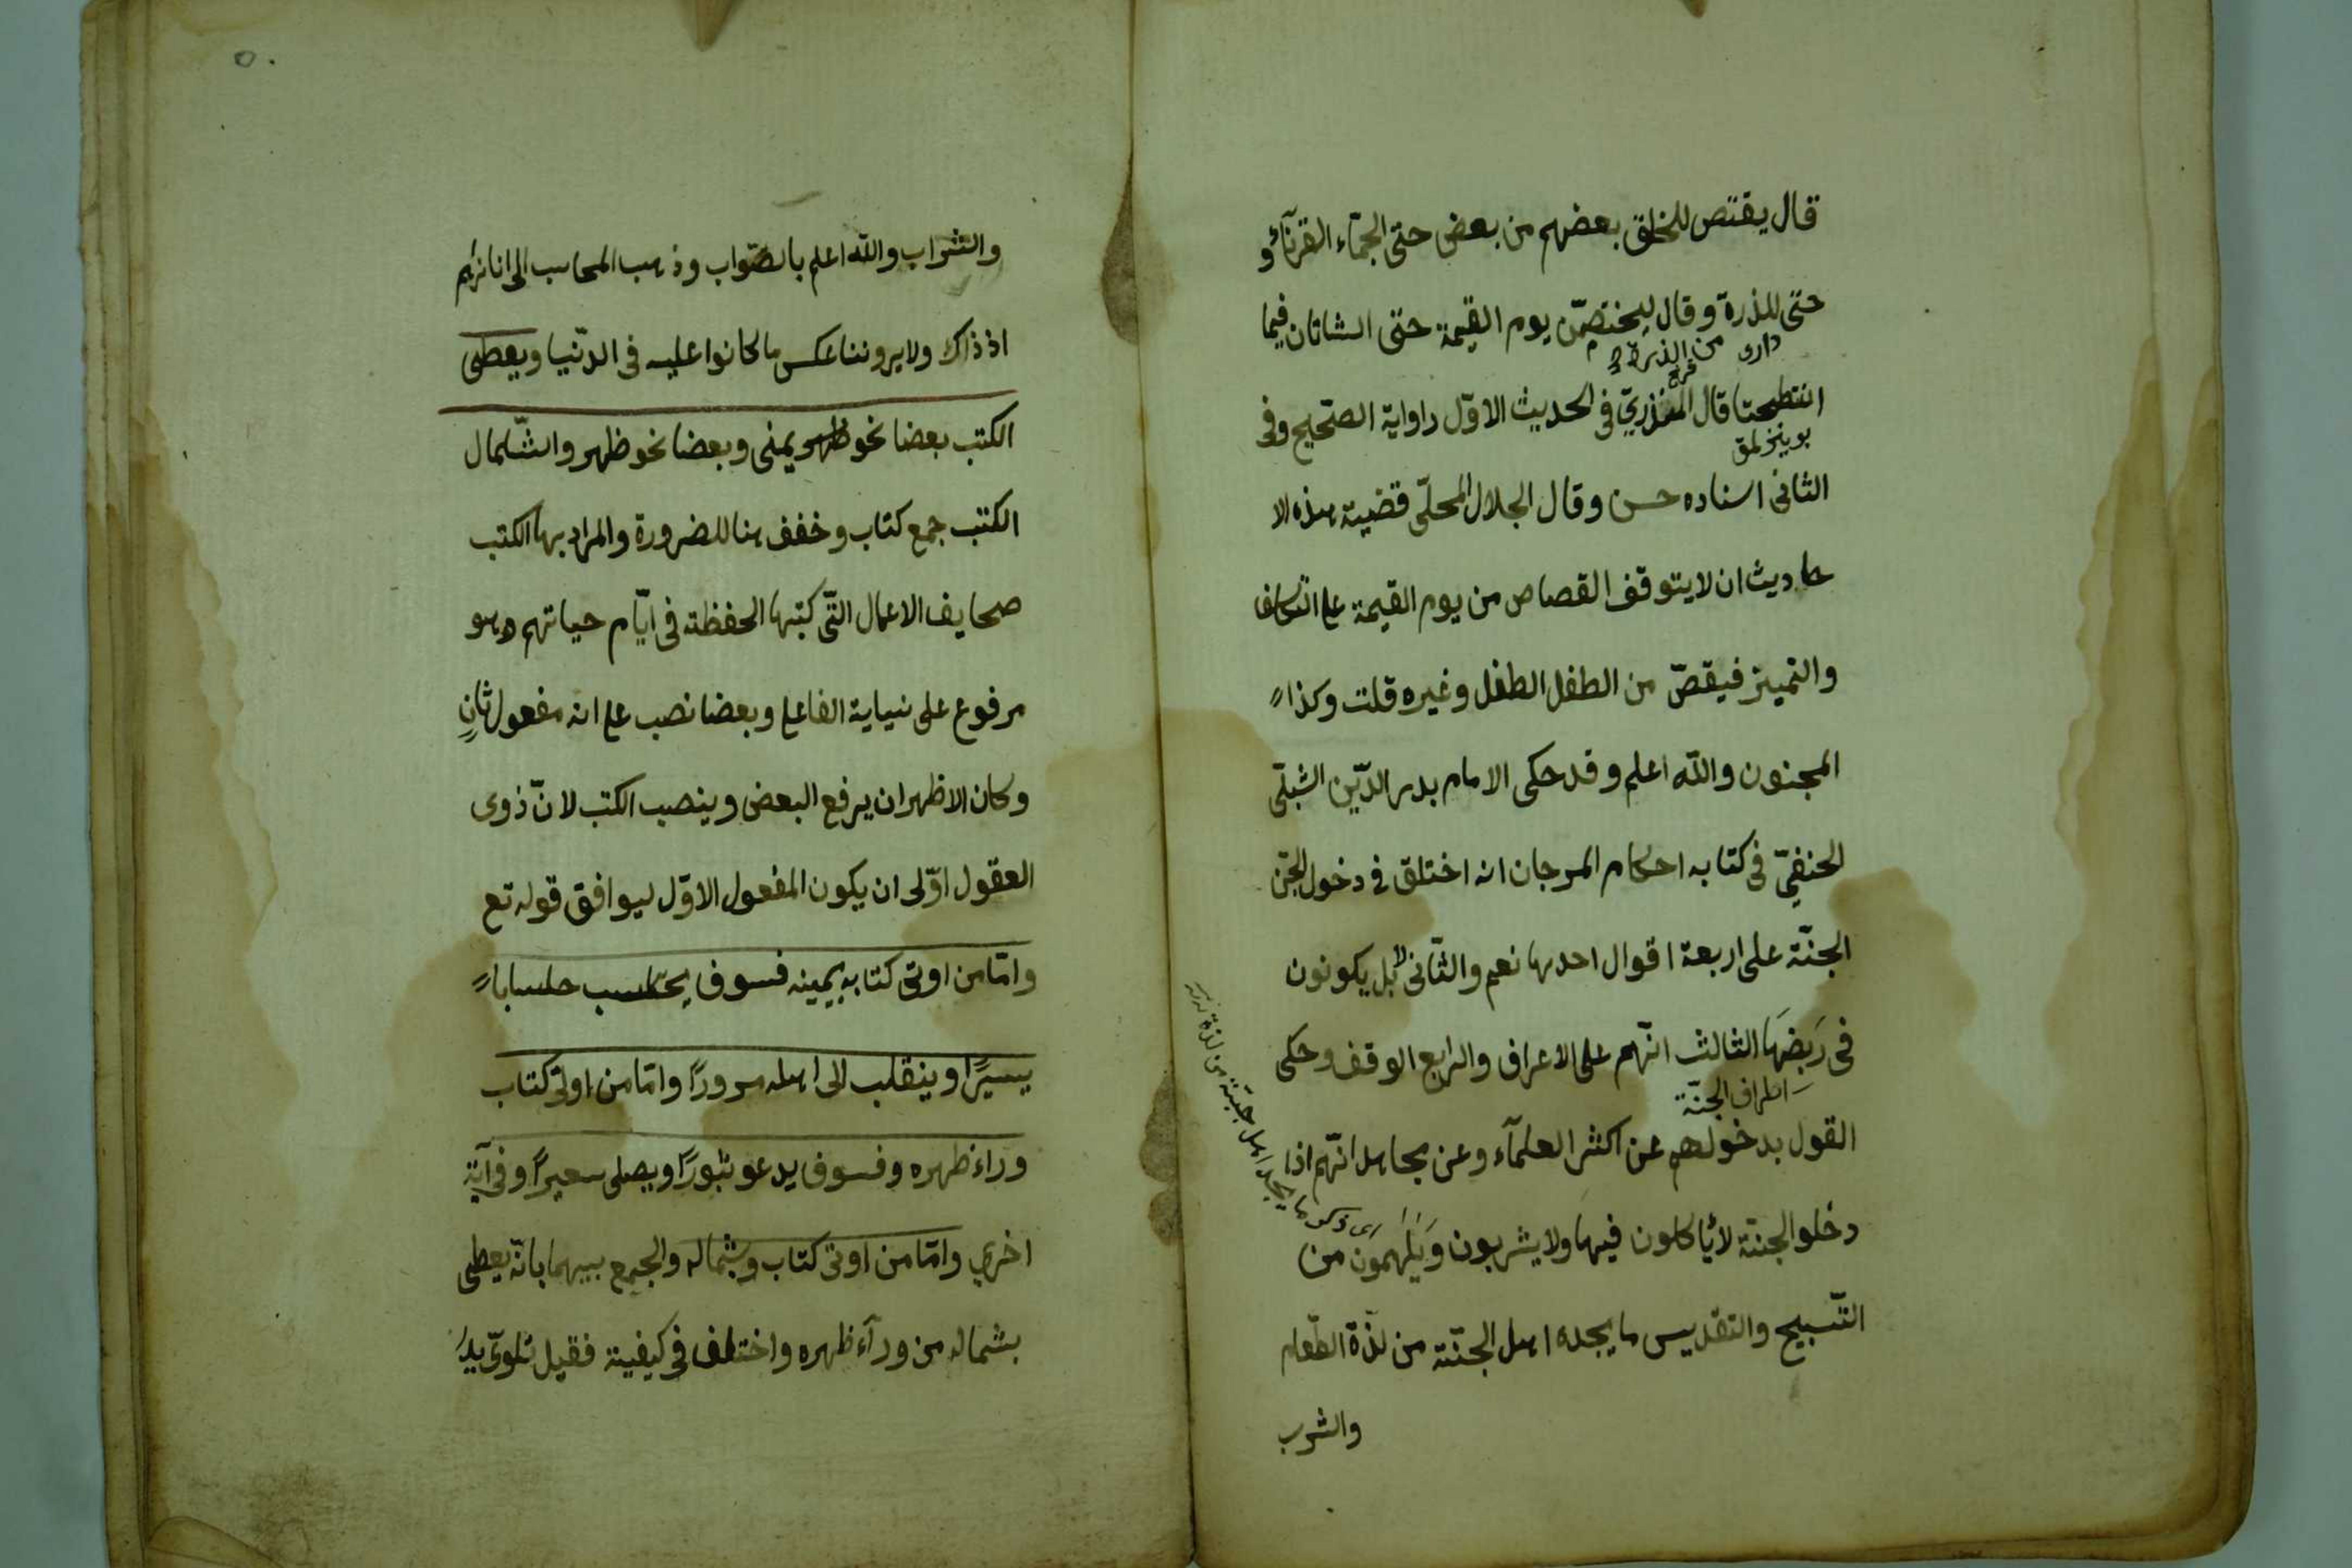 قال يقتص للخلق بعضهم من بعض حتى الجمّاء القرنآء و
حتّى للذرة وقال ليختصمّن يوم القيمة حتى الشاتان فيما
دارى من الذرة
انتطحتا قال المنذريّ فى الحديث الاوّل راواية الصّحيح وفى
الثانى اسناده حسن وقال الجلال المحلّى قضية هذه الا
حاديث ان لا يتوقف القصاص من يوم القيمة على التكليف
والتمييز فيقصّ من الطفل الطفل وغيره قلت وكذا
المجنون والله اعلم وقد حكى الامام بدر الدّين الشبلّى
الحنفيّ فى كتابه احكام المرجان انه اختلق فى دخول الجّن
الجنّة على اربعة اقوال احدها نعم والثّانى لا بل يكونون
فى رَبَضَها الثالث انّهم على الاعراف والرابع الوقف وحكى
اطراف الجنّة
القول بدخولهم عن اكثر العلمآء وعن مجاهد انّهم اذا
دخلوا الجنّة لا يأكلون فيها ولا يشربون وَيُلْهَمُون من
التّسبيح والتقديس ما يجده اهل الجنّة من لذّة الطّعام
والشرب
اى ذكر ما يجد اهل جنة من لذة
٥٠
والشراب والله اعلم بالصّواب وذهب المحاسب الى انا نرٰهم
اذ ذاك ولا يروننا عكس ما كانوا عليه فى الدّنيا ويعطى
الكتب بعضا نحو ظهر يمنى وبعضا نحو ظهر والشّمال
الكتب جمع كتاب وخفف هنا للضرورة والمراد بها الكتب
صحايف الاعمال التّى كتبها الحفظة فى ايّام حياتهم وهو
مرفوع على نيابة الفاعل وبعضا نصب على انه مفعول ثانٍ
وكان الاظهر ان يرفع البعض وينصب الكتب لانّ ذوى
العقول اوّلى ان يكون المفعول الاوّل ليوافق قوله تع
وامّا من اوتى كتابه بيمينه فسوف يحاسب حسابا
يسيرًا وينقلب الى اهله مسرورًا وامّا من اوتى كتاب
وراء ظهره وفسوف يدعو ثبورًا ويصلى سعيرًا وفى آية
اخرى وامّا من اوتى كتاب وبشماله والجمع بيبهما بانّه يعطى
بشماله من ورآء ظهره واختلف فى كيفية فقيل تلوىّ يدُ